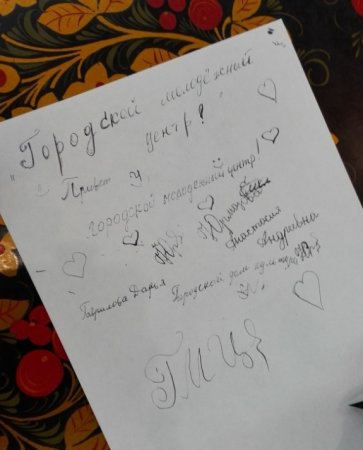 "Городской молодёжный
центр!"
Привет
городской молодёжный центр!
Анастасия
Андреевна
Гаврилова Дарья
Городской дом культуры
ГМЦ